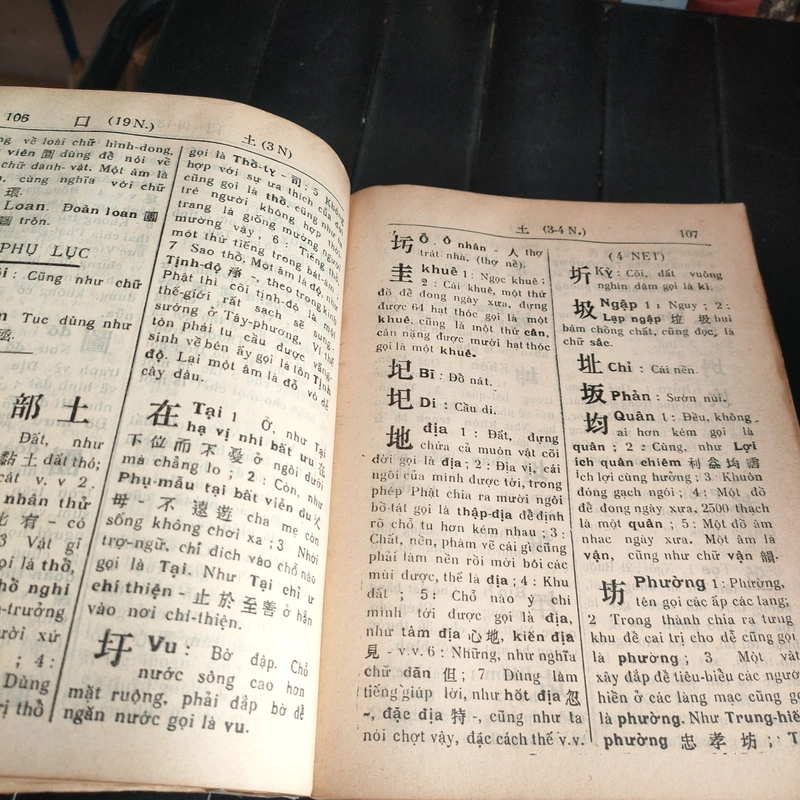 106 口 (19 N.)
về loài chữ hình-dong,
viên 圓 dùng để nói về
chữ danh-vật. Một âm là
cùng nghĩa với chữ
環.
Loan. Đoàn loan 團
圓 tròn.
PHỤ LỤC
: Cũng như chữ
Tục dùng như
部 土
Đất, như
黏土 đất thó;
v. v 2.
nhân thử
有 - có
3 Vật gì
là thồ,
hồ nghi
-trưởng
xứ
; 4 :
Dùng
trị thồ
土 (3 N)
gọi là Thồ-ty - 司 ; 5 Không
hợp với sự ưa thích của đời
cũng gọi là thồ, cũng như ta
trẻ người không hợp thời
trang là giống mường, người
mường vậy, 6 : Tiếng thồ,
một thứ tiếng trong bát-âm ;
7 Sao thồ. Một âm là độ, như
Tịnh-độ 淨 -, theo trong kinh
Phật thì cõi tịnh-độ là một
thế-giới rất sạch sẽ sung-
sướng ở Tây-phương, vì thế
tôn phái tu cầu được vãng-
sinh về bên ấy gọi là tôn Tịnh
độ. Lại một âm là đỗ vỏ dễ
cây dâu.
在 Tại 1 Ở, như Tại
hạ vị nhi bất ưu 在
下位而不憂 ở ngôi dưới
mà chẳng lo ; 2 : Còn, như
Phụ-mẫu tại bất viễn du 父
母 - 不遠遊 cha mẹ còn
sống không chơi xa ; 3 Nhời
trợ-ngữ, chỉ đích vào chỗ nào
gọi là Tại. Như Tại chỉ ư
chí thiện - 止於至善 ở hẳn
vào nơi chí-thiện.
圩 Vu : Bờ đập. Chỗ
nước sông cao hơn
mặt ruộng, phải đắp bờ để
ngăn nước gọi là vu.
土 (3-4 N.) 107
圬 Ô. Ô nhân - 人 thợ
trát nhà, (thợ nề).
圭 khuê 1 : Ngọc khuê ;
2 : Cái khuê, một thứ
đồ để dong ngày xưa, đựng
được 64 hạt thóc gọi là một
khuê, cũng là một thứ cân,
cân nặng được mười hạt thóc
gọi là một khuê.
圮 Bĩ : Đồ nát.
圯 Di : Cầu di.
地 địa 1 : Đất, đựng
chứa cả muôn vật cõi
đời gọi là địa ; 2 : Địa vị, cái
ngôi của mình được tới, trong
phép Phật chia ra mười ngôi
bồ-tát gọi là thập-địa để định
rõ chỗ tu hơn kém nhau ; 3 :
Chất, nền, phàm vẽ cái gì cũng
phải làm nền rồi mới bôi các
mùi được, thế là địa ; 4 : Khu
đất ; 5 : Chỗ nào ý chí
mình tới được gọi là địa,
như tâm địa 心地, kiến địa
見 - v.v. 6 : Những, như nghĩa
chữ đãn 但 ; 7 Dùng làm
tiếng giúp lời, như hốt địa 忽
-, đặc địa 特 -, cũng như ta
nói chợt vậy, đặc cách thế v.v.
(4 NÉT)
圻 Kỳ : Cõi, đất vuông
nghìn dặm gọi là kì.
圾 Ngập 1 : Nguy ; 2 :
Lạp ngập 垃圾 bụi
bặm chồng chất, cũng đọc là
chữ sắc.
址 Chỉ : Cái nền.
坂 Phản : Sườn núi.
均 Quân 1 : Đều, không
ai hơn kém gọi là
quân ; 2 : Cùng, như Lợi
ích quân chiêm 利益均霑
ích lợi cùng hưởng ; 3 Khuôn
đóng gạch ngói ; 4 : Một đồ
để đong ngày xưa, 2500 thạch
là một quân ; 5 : Một đồ âm
nhạc ngày xưa. Một âm là
vận, cũng như chữ vận 韻.
坊 Phường 1 : Phường,
tên gọi các ấp các làng;
2 Trong thành chia ra từng
khu để cai trị cho dễ cũng gọi
là phường ; 3 Một vật
xây đắp để tiêu-biểu các người
hiền ở các làng mạc cũng gọi
là phường. Như Trung-hiế
phường 忠孝坊 ; T